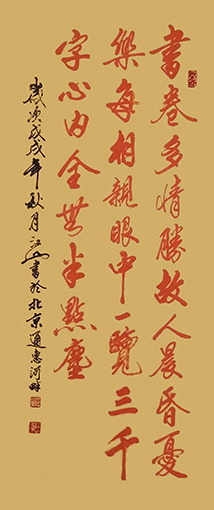 書卷多情勝故人晨昏憂
樂每相親眼中一覽三千
字心內全無半點塵
歲次戊戌年秋月江山書於北京通惠河畔